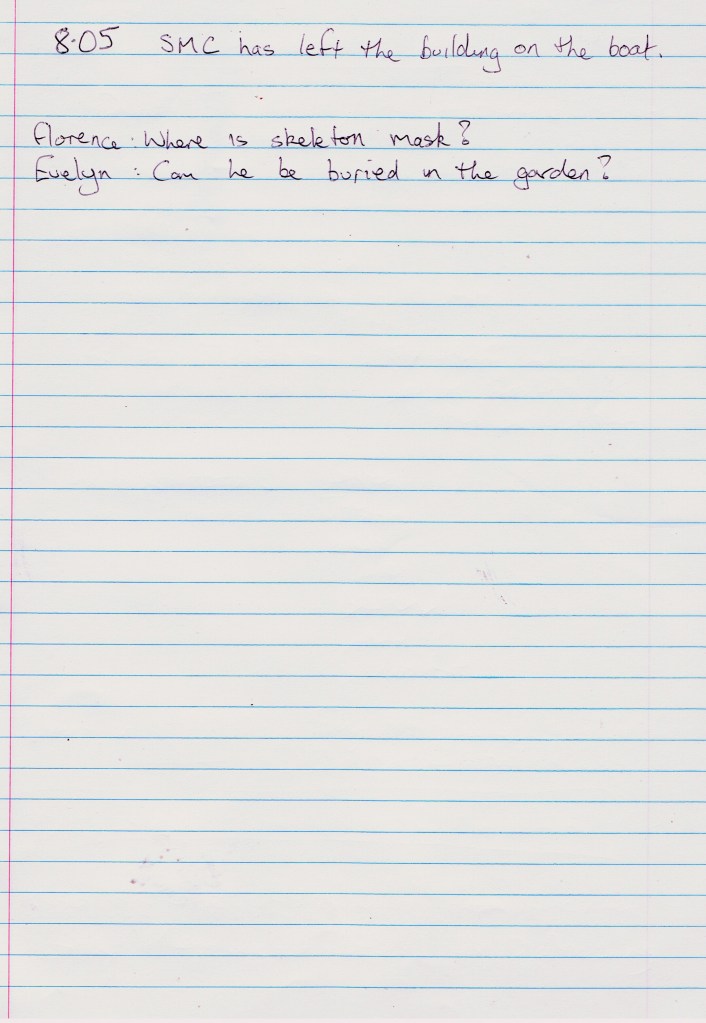 8.05 SMC has left the building on the boat.
Florence: Where is skeleton mask?
Evelyn: Can he be buried in the garden?